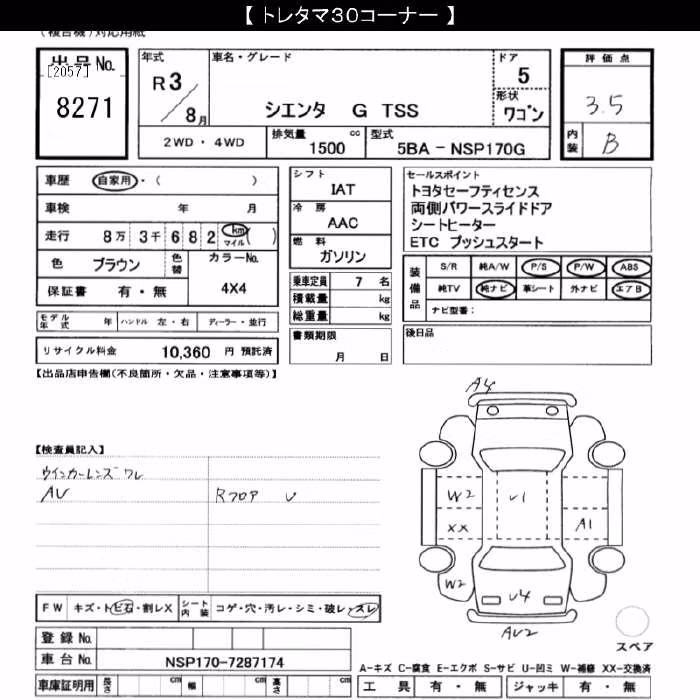 【 トレタマ30コーナー 】
(複合機)対応用紙
出品No.
[2057]
8271
年式
R3/8月
車名・グレード
シエンタ G TSS
ドア
5
形状
ワゴン
2WD ・ 4WD
排気量 cc
1500
型式
5BA - NSP170G
評価点
3.5
内装
B
車歴 自家用・( )
車検 年 月
走行 8万 3千 6 8 2 km マイル ( )
色 ブラウン 色替 カラーNo.
4X4
保証書 有・無
モデル年式 年 ハンドル 左・右 ディーラー・並行
リサイクル料金 10,360 円 預託済
シフト
IAT
冷房
AAC
燃料
ガソリン
乗車定員 7 名
積載量 kg
総重量 kg
書類期限
月 日
セールスポイント
トヨタセーフティセンス
両側パワースライドドア
シートヒーター
ETC プッシュスタート
装備品
S/R 純A/W P/S P/W ABS
純TV 純ナビ 革シート 外ナビ エアB
ナビ型番:
後日品
【出品店申告欄(不良箇所・欠品・注意事項等)】
【検査員記入】
ウインカーレンズ ワレ
AU
Rフロア U
A4
W2
U1
XX
A1
W2
U4
AU2
スペア
FW キズ・トビ石・割レX シート内装 コゲ・穴・汚レ・シミ・破レ・スレ
登録No.
車台No. NSP170-7287174
車庫証明用 長さ cm 幅 cm 高さ cm
A-キズ C-腐食 E-エクボ S-サビ U-凹ミ W-補修 XX-交換済
工具 有・無 ジャッキ 有・無